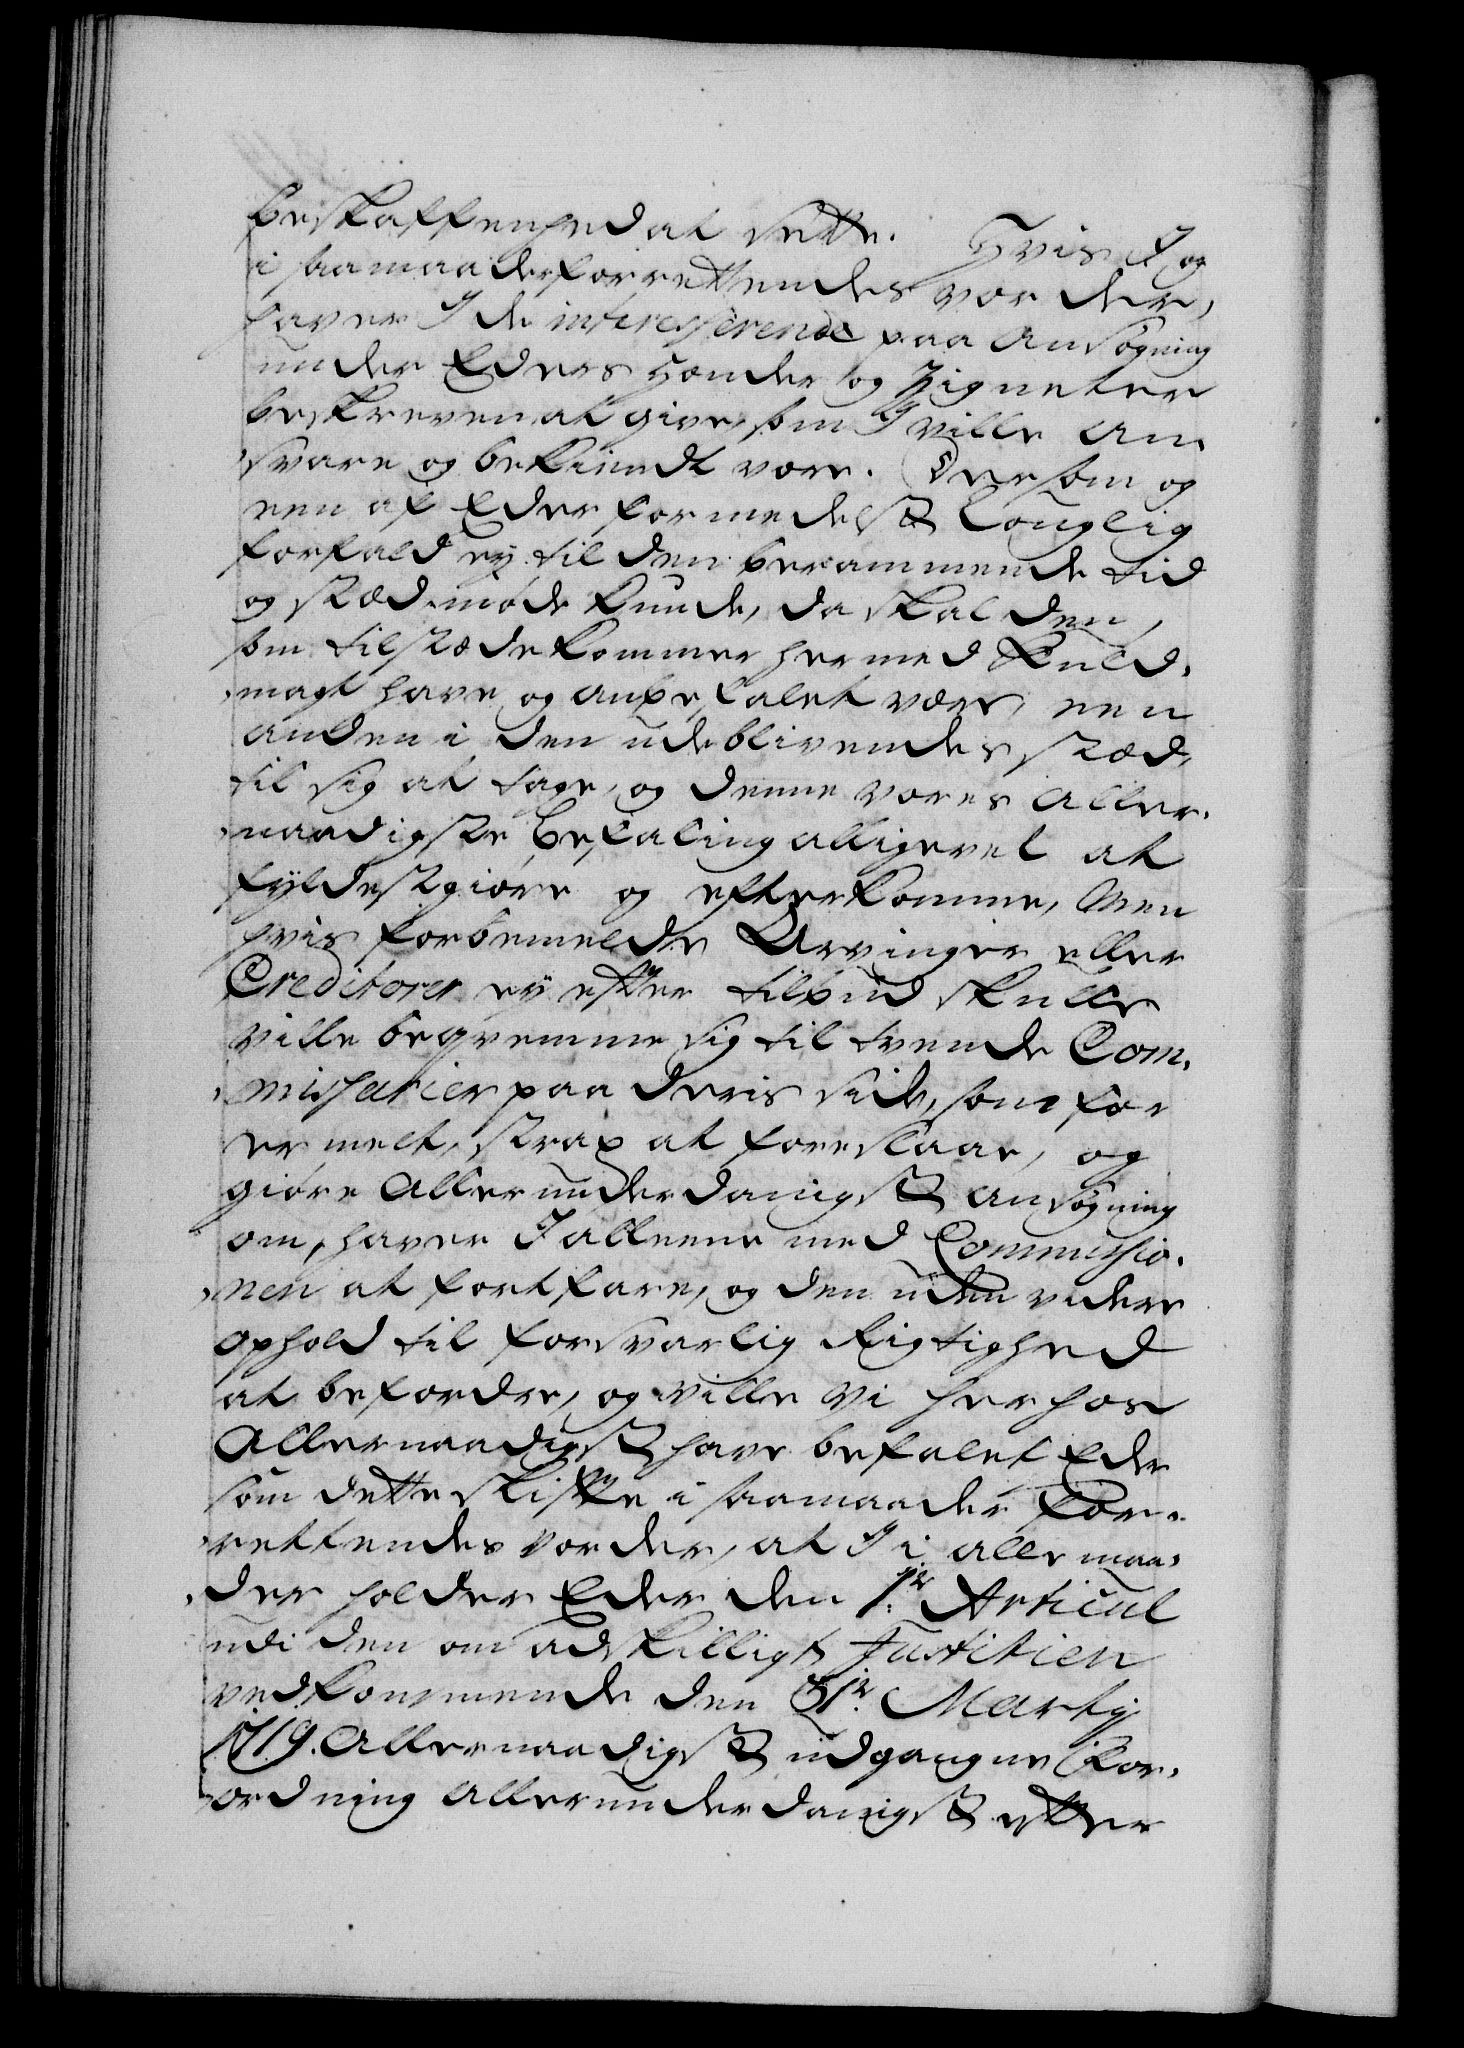 beskaffenhed at sette. Hvis I og
i saamaader forrettendes vorder,
haver I de interesserende paa Ansøgning
under Eders Hænder og Zigneter
beskreven at give, som I ville An-
svare og bekiendt være. Dersom og
een af Eder formedelst Louglig
forfald ey til den berammende tid
og stæd møde kunde, da skal den,
som tilstæde kommer hermed Fuld-
magt have og anbefalet være, een
anden i den udeblivendes stæd,
til sig at tage, og denne vores Aller-
naadigste befaling alligevel at
fyldestgiøre og efterkomme, Men
hvis forbemelde Arvinger eller
Creditorer ey efter tilbud skulle
ville beqvemme sig til tvende Com-
missarier paa deris side, som før
er melt, strax at foreslaae, og
giøre Allerunderdanigst ansøgning
om, haver I alleene med Commissio-
nen at fortfare, og den uden videre
ophold til forsvarlig Rigtighed
at befordre, og ville Vi herhos
Allernaadigst have befalet Eder
som dette skifte i saamaader for-
rettendes vorder, at I i alle maa-
der holder Eder den 1te Articul
udi den om adskilligt Justitien
vedkommende den 31te Martij
1719. Allernaadigst udgangne For-
ordning Allerunderdanigst efter